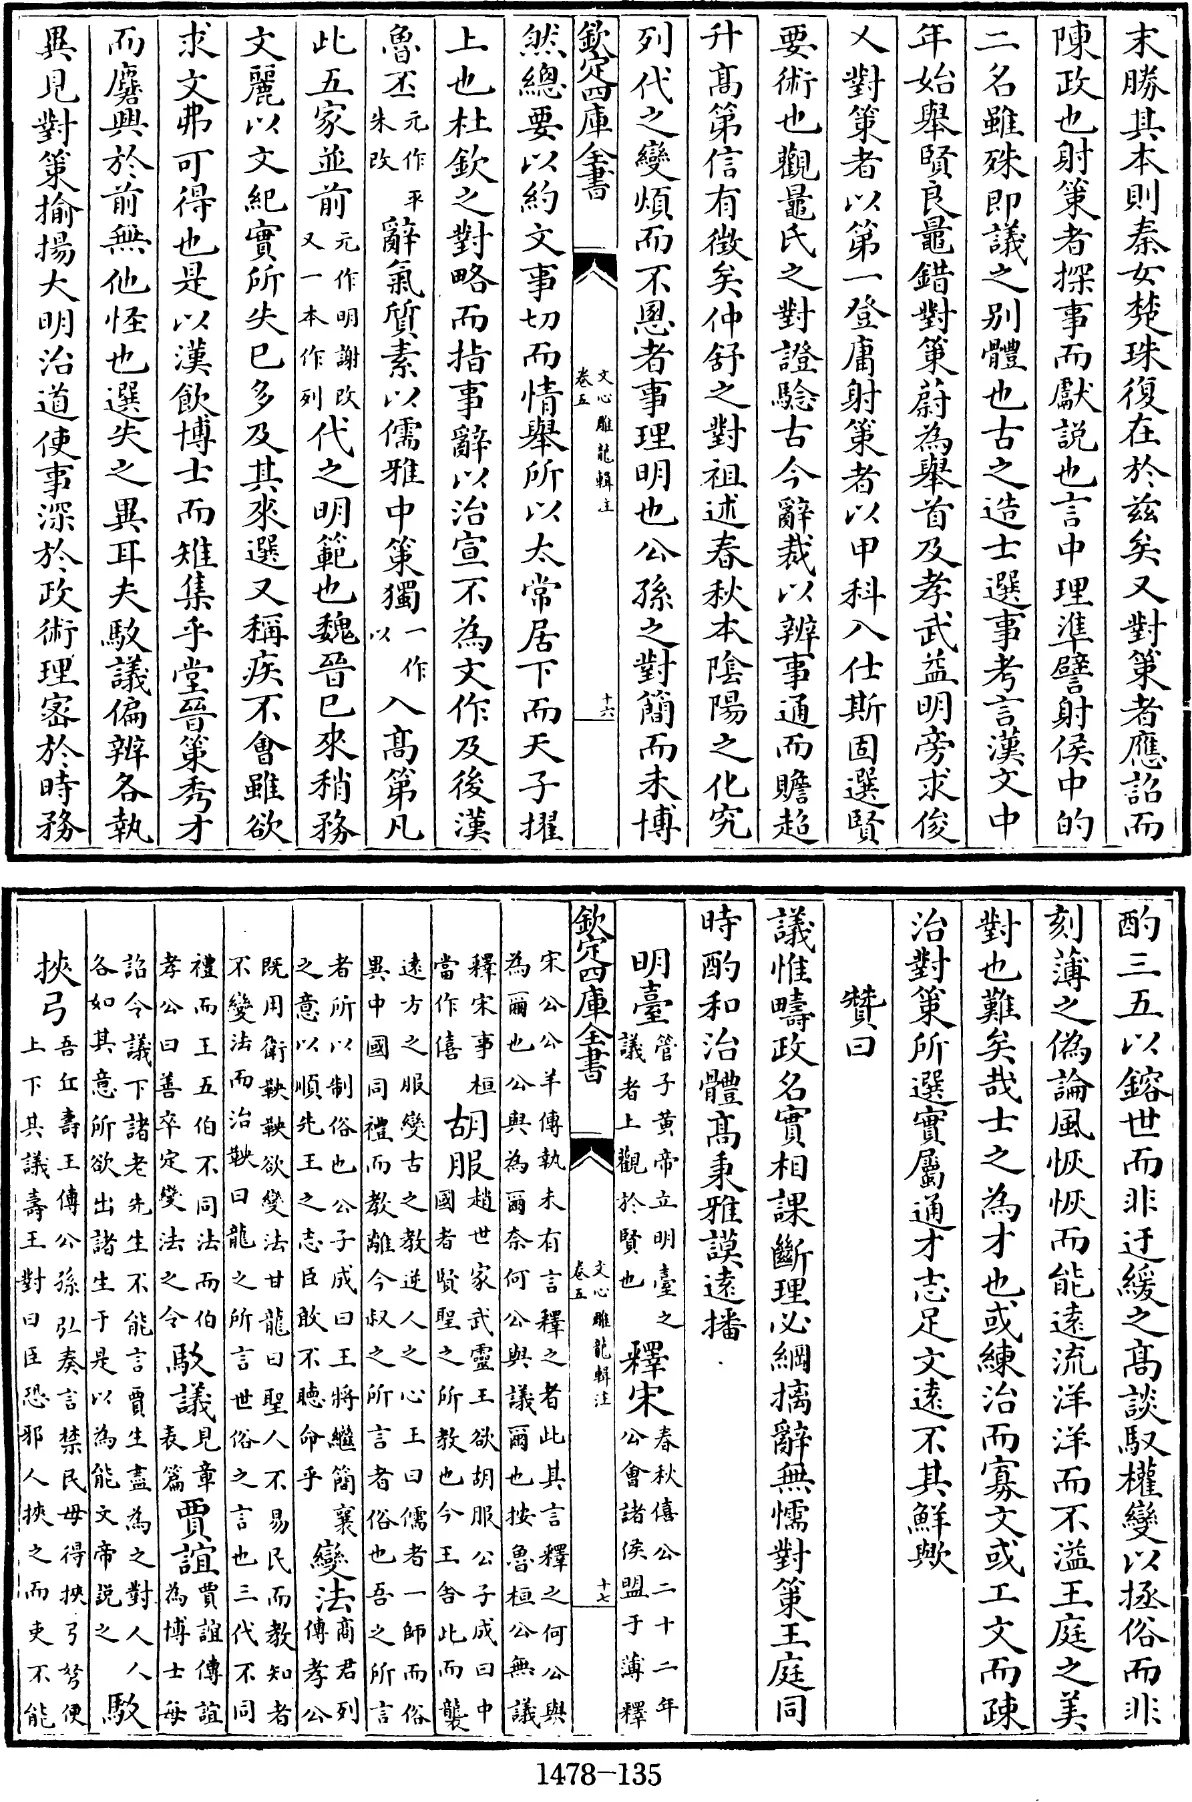 末勝其本則秦女楚珠復在於兹矣又對策者應詔而
陳政也射策者探事而獻説也言中理準譬射侯中的
二名雖殊即議之别體也古之造士選事考言漢文中
年始舉賢良鼂錯對策蔚為舉首及孝武益明旁求俊
乂對策者以第一登庸射策者以甲科入仕斯固選賢
要術也觀鼂氏之對證驗古今辭裁以辨事通而贍超
升髙第信有徵矣仲舒之對祖述春秋本陰陽之化究
列代之變煩而不慁者事理明也公孫之對簡而未博
欽定四庫全書
文心雕龍輯注
卷五
十六
然總要以約文事切而情舉所以太常居下而天子擢
上也杜欽之對略而指事辭以治宣不為文作及後漢
魯丕元作平朱改辭氣質素以儒雅中策獨一作以入髙第凡
此五家並前元作明謝改又一本作列代之明範也魏晉已來稍務
文麗以文紀實所失已多及其來選又稱疾不會雖欲
求文弗可得也是以漢飲博士而雉集乎堂晉策秀才
而麏興於前無他怪也選失之異耳夫駮議偏辨各執
異見對策揄揚大明治道使事深於政術理密於時務
酌三五以鎔世而非迂緩之髙談馭權變以拯俗而非
刻薄之偽論風恢恢而能遠流洋洋而不溢王庭之美
對也難矣哉士之為才也或練治而寡文或工文而疎
治對策所選實屬通才志足文遠不其鮮歟
贊曰
議惟疇政名實相課斷理必綱摛辭無懦對策王庭同
時酌和治體髙秉雅謨遠播
明臺管子黄帝立明臺之議者上觀於賢也釋宋春秋僖公二十二年公會諸侯盟于薄釋
欽定四庫全書
文心雕龍輯注
卷五
十七
宋公公羊傳執未有言釋之者此其言釋之何公與
為爾也公與為爾奈何公與議爾也按魯桓公無議
釋宋事桓當作僖胡服趙世家武靈王欲胡服公子成曰中國者賢聖之所教也今王舍此而襲
遠方之服變古之教逆人之心王曰儒者一師而俗
異中國同禮而教離今叔之所言者俗也吾之所言
者所以制俗也公子成曰王將繼簡襄之意以順先王之志臣敢不聽命乎變法商君列傳孝公
既用衛鞅鞅欲變法甘龍曰聖人不易民而教知者
不變法而治鞅曰龍之所言世俗之言也三代不同
禮而王五伯不同法而伯孝公曰善卒定變法之令駮議見章表篇賈誼賈誼傳誼為博士每
詔令議下諸老先生不能言賈生盡為之對人人各如其意所欲出諸生于是以為能文帝説之駮
挾弓吾丘壽王傳公孫弘奏言禁民毋得挾弓弩便上下其議壽王對曰臣恐邪人挾之而吏不能
1478—135